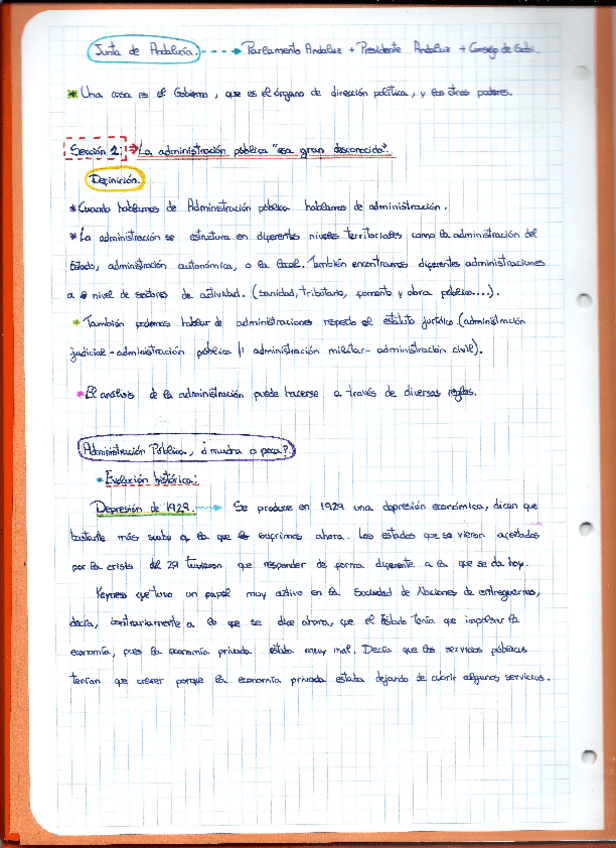 Junta de Andalucía. ---→ Parlamento Andaluz + Presidente Andaluz + Consejo de Gob.
* Una cosa es el Gobierno, que es el órgano de dirección política, y los otros poderes.
Sección 2: → La administración pública "esa gran desconocida".
Definición.
* Cuando hablamos de Administración pública hablamos de administración.
* La administración se estructura en diferentes niveles territoriales como la administración del
Estado, administración autonómica, o la local. También encontramos diferentes administraciones
a nivel de sectores de actividad. (Sanidad, tributario, fomento y obra pública....).
* También podemos hablar de administraciones respecto el estatuto jurídico. (administración
judicial - administración pública // administración militar - administración civil).
* El análisis de la administración puede hacerse a través de diversas reglas.
Administración Pública, ¿mucha o poca?
* Evolución histórica:
Depresión de 1929. ---→ Se produce en 1929 una depresión económica, dicen que
bastante más suave a la que sufrimos ahora. Los estados que se vieron afectados
por la crisis del 29 tuvieron que responder de forma diferente a la que se da hoy.
Keynes que tuvo un papel muy activo en la Sociedad de Naciones de entreguerras,
decía, contrariamente a lo que se dice ahora, que el Estado tenía que impulsar la
economía, pues la economía privada estaba muy mal. Decía que los servicios públicos
tenían que crecer porque la economía privada estaba dejando de cubrir algunos servicios.